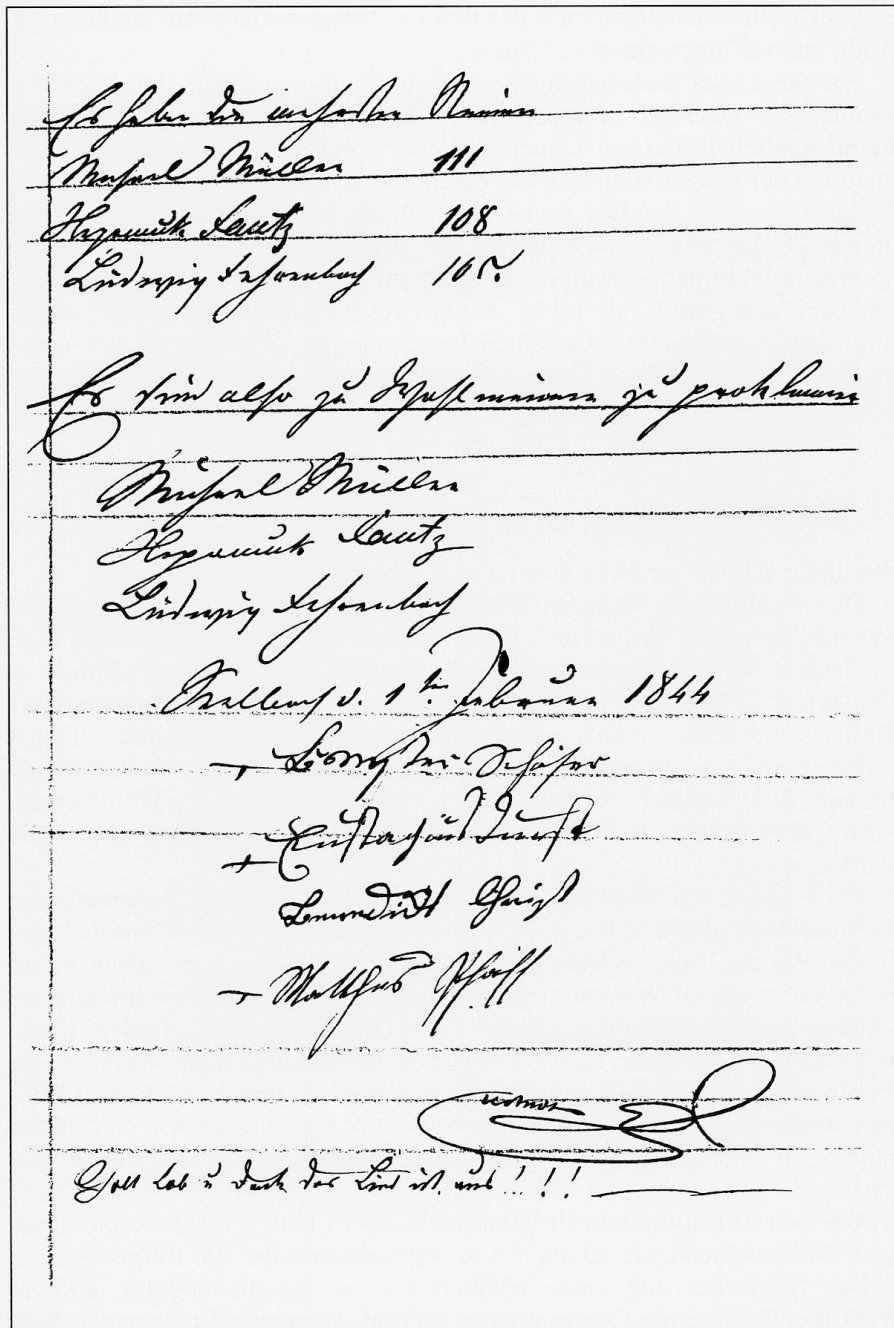 Es haben die mehrsten Stimmen
Michael Müller 111
Nepomuk Fautz 108
Ludwig Fehrenbach 105.
Es sind also zu Wahlmännern zu proklamir
Michael Müller
Nepomuk Fautz
Ludwig Fehrenbach
d. 1ten Februar 1844
Schäfer
Eustachius Durst
Benedikt Christ
Mathias Pfaff
Gott lob u Dank das Lied ist aus!!!